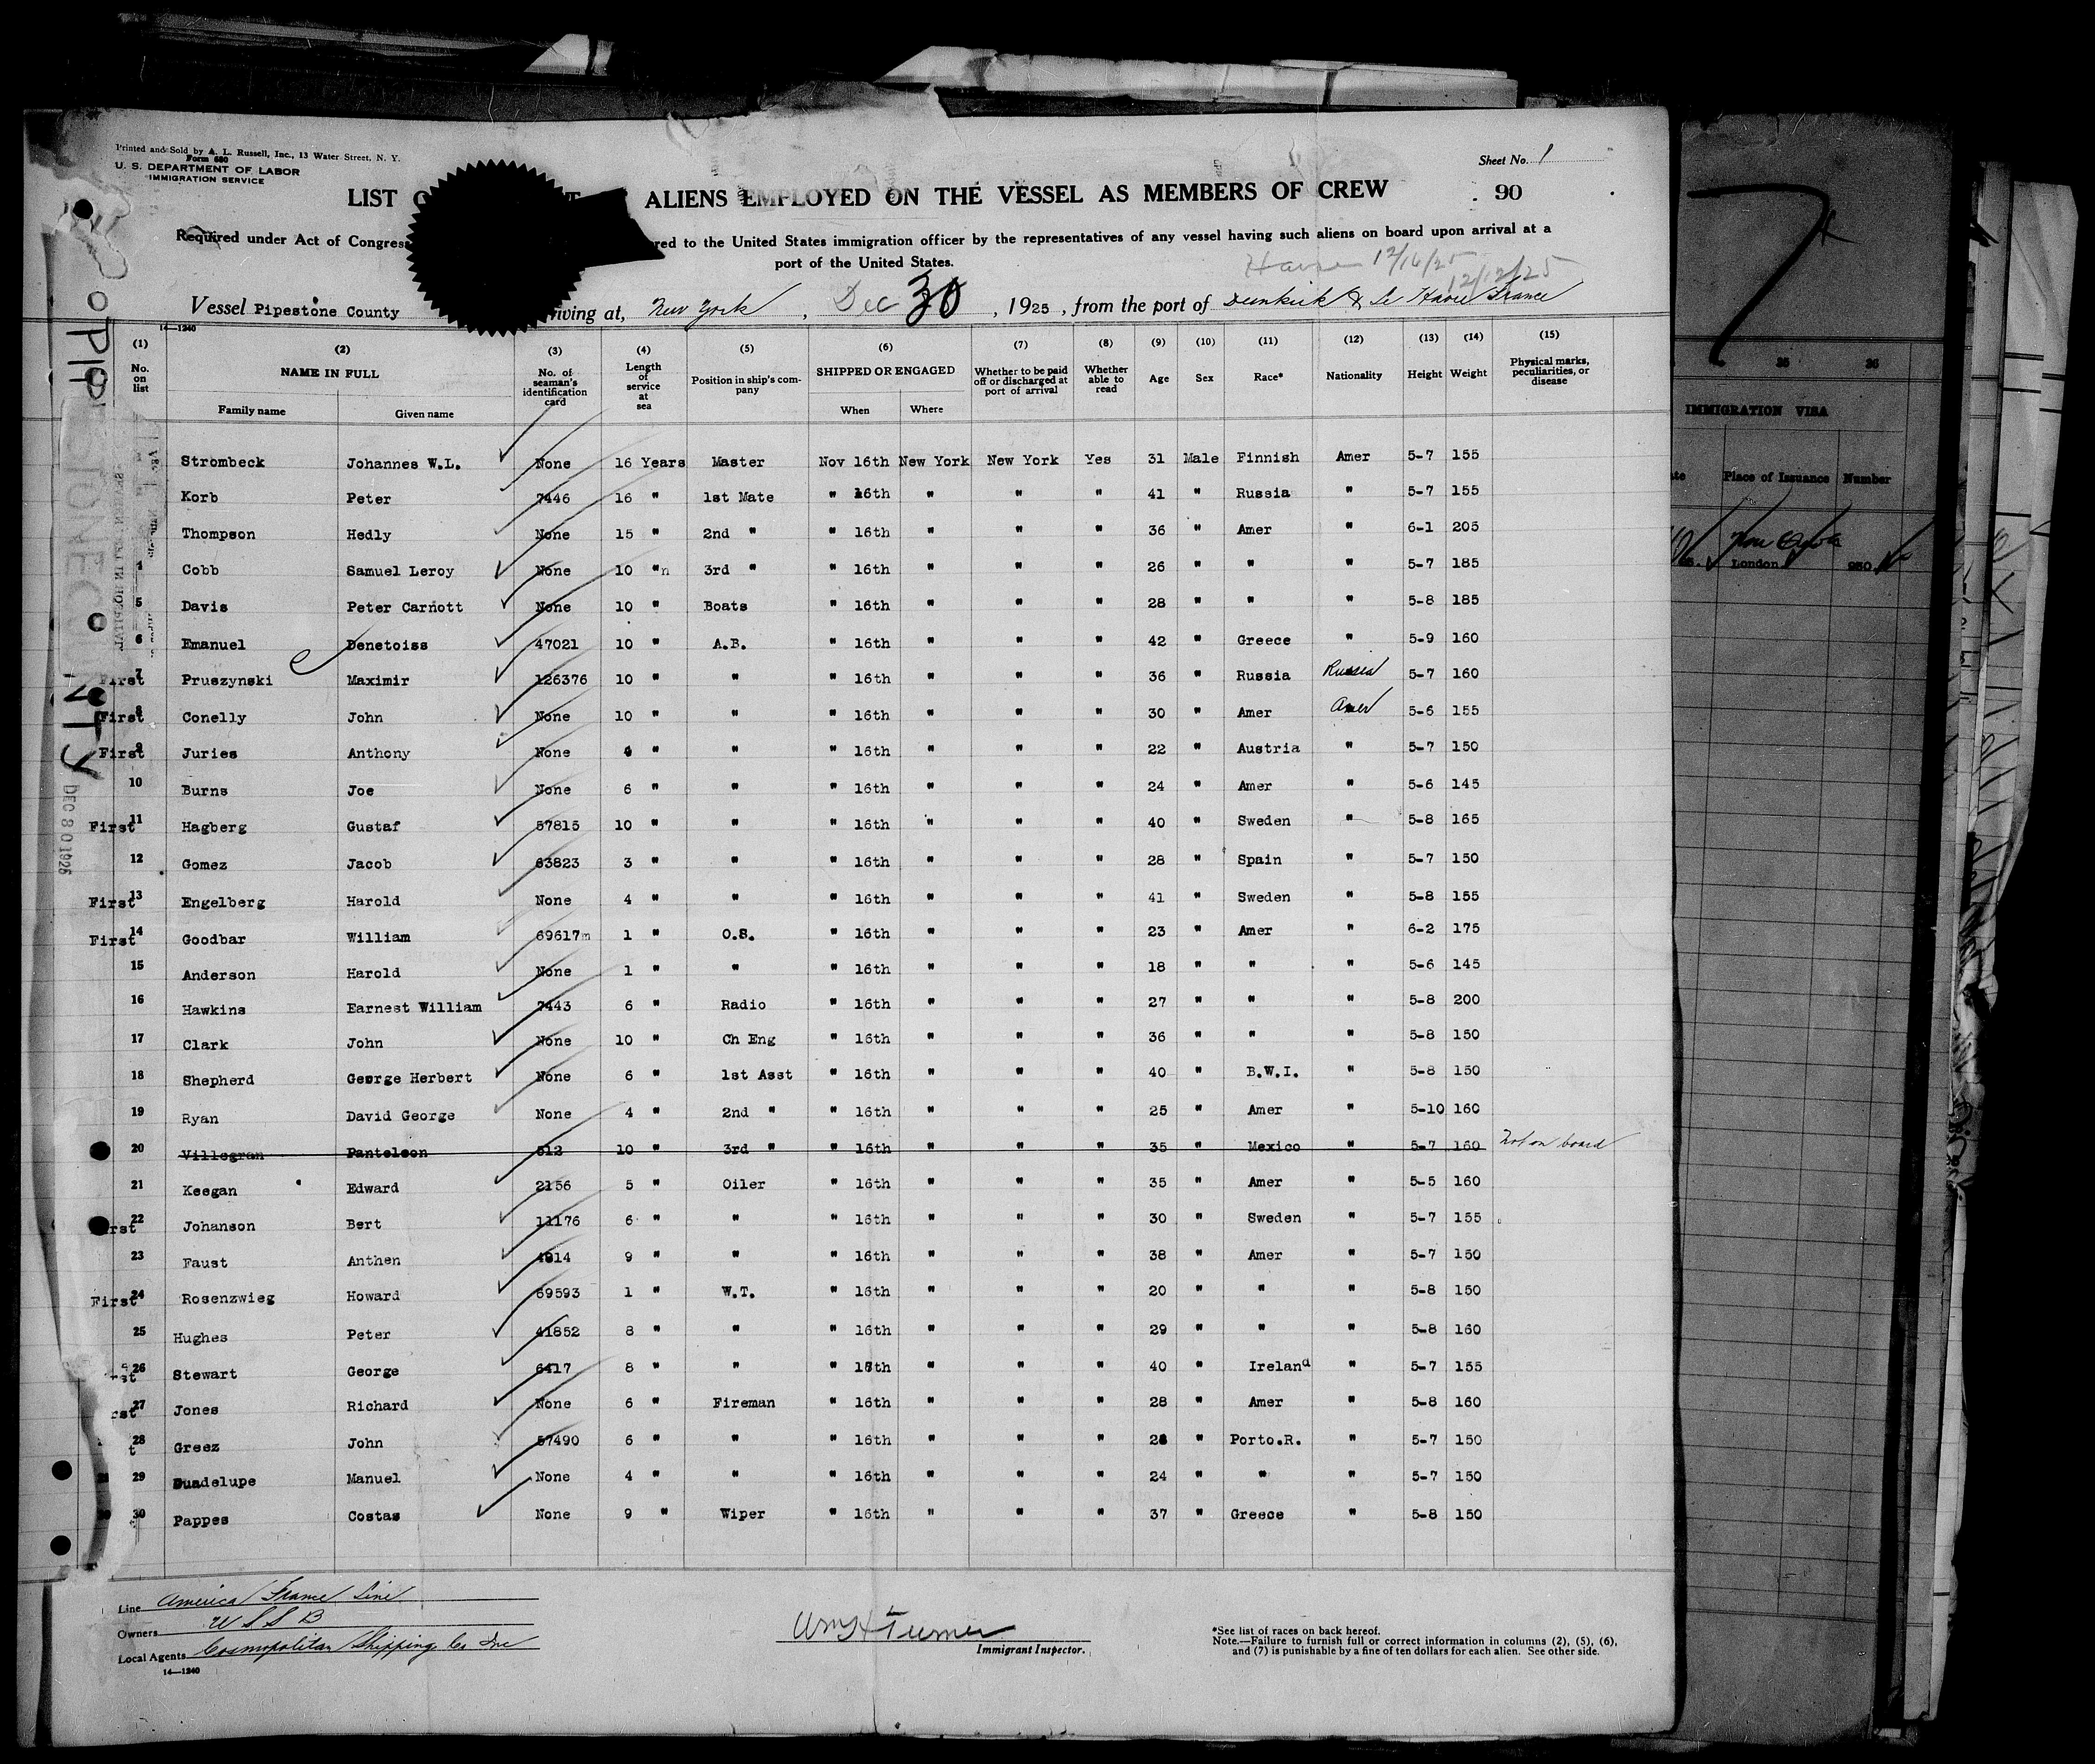 Printed and Sold by A. L. Russell, Inc., 13 Water Street, N. Y.
Form 680
U. S. DEPARTMENT OF LABOR
IMMIGRATION SERVICE
Sheet No. 1
LIST ALIENS EMPLOYED ON THE VESSEL AS MEMBERS OF CREW
90
Required under Act of Congress red to the United States immigration officer by the representatives of any vessel having such aliens on board upon arrival at a
port of the United States.
Havre 12/16/25
12/12/25
Vessel Pipestone County iving at, New York, Dec 30, 1925, from the port of Dunkirk & Le Havre France
14—1240
(1) (2) (3) (4) (5) (6) (7) (8) (9) (10) (11) (12) (13) (14) (15)
No. on list NAME IN FULL Family name Given name No. of seaman's identification card Length of service at sea Position in ship's company SHIPPED OR ENGAGED When Where Whether to be paid off or discharged at port of arrival Whether able to read Age Sex Race* Nationality Height Weight Physical marks, peculiarities, or disease
Strombeck Johannes W.L. None 16 Years Master Nov 16th New York New York Yes 31 Male Finnish Amer 5-7 155
Korb Peter 7446 16 " 1st Mate " 16th " " " 41 " Russia " 5-7 155
Thompson Hedly None 15 " 2nd " " 16th " " " 36 " Amer " 6-1 205
4 Cobb Samuel Leroy None 10 "n 3rd " " 16th " " " 26 " " " 5-7 185
5 Davis Peter Carnott None 10 " Boats " 16th " " " 28 " " " 5-8 185
6 Emanuel Denetoiss 47021 10 " A.B. " 16th " " " 42 " Greece " 5-9 160
First 7 Pruszynski Maximir 126376 10 " " " 16th " " " 36 " Russia Russia 5-7 160
First 8 Conelly John None 10 " " " 16th " " " 30 " Amer Amer 5-6 155
First 9 Juries Anthony None 4 " " " 16th " " " 22 " Austria " 5-7 150
10 Burns Joe None 6 " " " 16th " " " 24 " Amer " 5-6 145
First 11 Hagberg Gustaf 57815 10 " " " 16th " " " 40 " Sweden " 5-8 165
12 Gomez Jacob 63823 3 " " " 16th " " " 28 " Spain " 5-7 150
First 13 Engelberg Harold None 4 " " " 16th " " " 41 " Sweden " 5-8 155
First 14 Goodbar William 69617m 1 " O.S. " 16th " " " 23 " Amer " 6-2 175
15 Anderson Harold None 1 " " " 16th " " " 18 " " " 5-6 145
16 Hawkins Earnest William 7443 6 " Radio " 16th " " " 27 " " " 5-8 200
17 Clark John None 10 " Ch Eng " 16th " " " 36 " " " 5-8 150
18 Shepherd George Herbert None 6 " 1st Asst " 16th " " " 40 " B.W.I. " 5-8 150
19 Ryan David George None 4 " 2nd " " 16th " " " 25 " Amer " 5-10 160
20 Villegran Panteleon 512 10 " 3rd " " 16th " " " 35 " Mexico " 5-7 160 Not on board
21 Keegan Edward 2156 5 " Oiler " 16th " " " 35 " Amer " 5-5 160
rst 22 Johanson Bert 11176 6 " " " 16th " " " 30 " Sweden " 5-7 155
23 Faust Anthen 4814 9 " " " 16th " " " 38 " Amer " 5-7 150
First 24 Rosenzwieg Howard 69593 1 " W.T. " 16th " " " 20 " " " 5-8 150
25 Hughes Peter 41852 8 " " " 16th " " " 29 " " " 5-8 160
rst 26 Stewart George 6417 8 " " " 16th " " " 40 " Ireland " 5-7 155
rst 27 Jones Richard None 6 " Fireman " 16th " " " 28 " Amer " 5-8 160
t 28 Greez John 57490 6 " " " 16th " " " 28 " Porto.R. " 5-7 150
29 Guadelupe Manuel None 4 " " " 16th " " " 24 " " " 5-7 150
30 Pappes Costas None 9 " Wiper " 16th " " " 37 " Greece " 5-8 150
Line America France Line
Owners U S S B
Local Agents Cosmopolitan Shipping Co Inc
14—1240
Wm H Turner
Immigrant Inspector.
*See list of races on back hereof.
Note.—Failure to furnish full or correct information in columns (2), (5), (6),
and (7) is punishable by a fine of ten dollars for each alien. See other side.
PIPESTONE COUNTY
DEC 30 1925
7
35 36
IMMIGRATION VISA
Place of Issuance Number
London 950